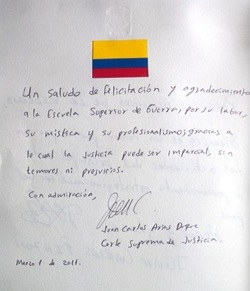 Un saludo de felicitación y agradecimiento
a la Escuela Superior de Guerra, por su labor,
su mística y su profesionalismo, gracias a
lo cual la justicia puede ser imparcial, sin
temores ni prejuicios.
Con admiración,
Juan Carlos Arias
Corte Suprema de Justicia.
Marzo 1 de 2011.